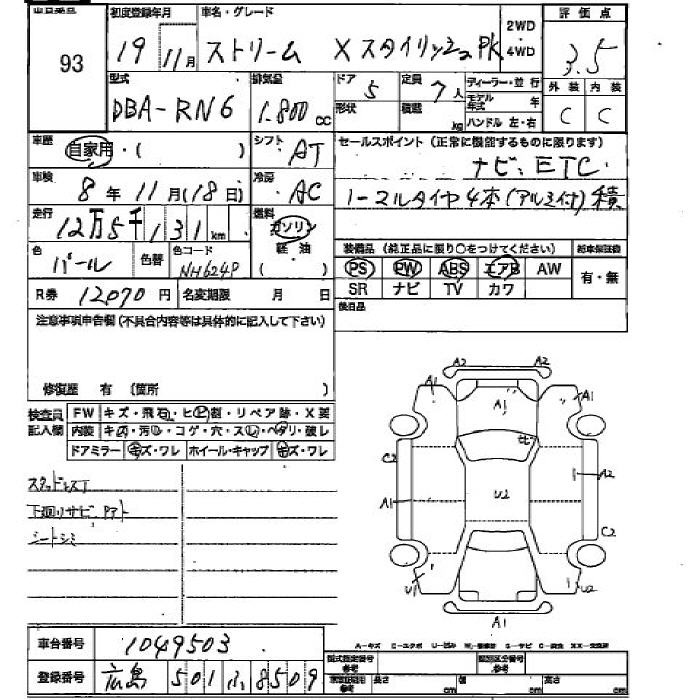 初度登録年月 車名・グレード 2WD 評価点
93 19 11月 ストリーム Xスタイリッシュ PK 4WD 3.5
型式 排気量 ドア 5 定員 7人 ディーラー・並行 外装 内装
DBA-RN6 1.800cc 形状 積載 kg モデル年式 年 C C
ハンドル 左・右
車歴 自家用・( ) シフト AT セールスポイント (正常に機能するものに限ります)
ナビ、ETC.
車検 8年11月(18日) 冷房 AC ノーマルタイヤ4本(アルミ付)積
走行 12万5千131km 燃料 ガソリン 軽油 ( )
色 パール 色替 色コード NH624P 装備品 (純正品に限り○をつけてください) 新車保証書
PS PW ABS エアB AW 有・無
R券 12070円 名変期限 月 日 SR ナビ TV カワ
注意事項申告欄 (不具合内容等は具体的に記入して下さい) 後日品
修復歴 有 (箇所 )
検査員記入欄 FW キズ・飛石・ヒビ割・リペア跡・X美
内装 キズ・汚れ・コゲ・穴・スレ・ヘタリ・破レ
ドアミラー キズ・ワレ ホイール・キャップ キズ・ワレ
スタッドレスT
下廻りサビ、Pアト
シートシミ
A2 A2
A1 A1 A1
ヒビ
C2 A2
A1 U2
C2
U1 U2
A1
車台番号 1049503
登録番号 広島 501 ふ 8509
A=キズ E=エクボ U=凹み
型式指定番号 参考 類別区分番号 参考
長さ cm 幅 cm 高さ cm